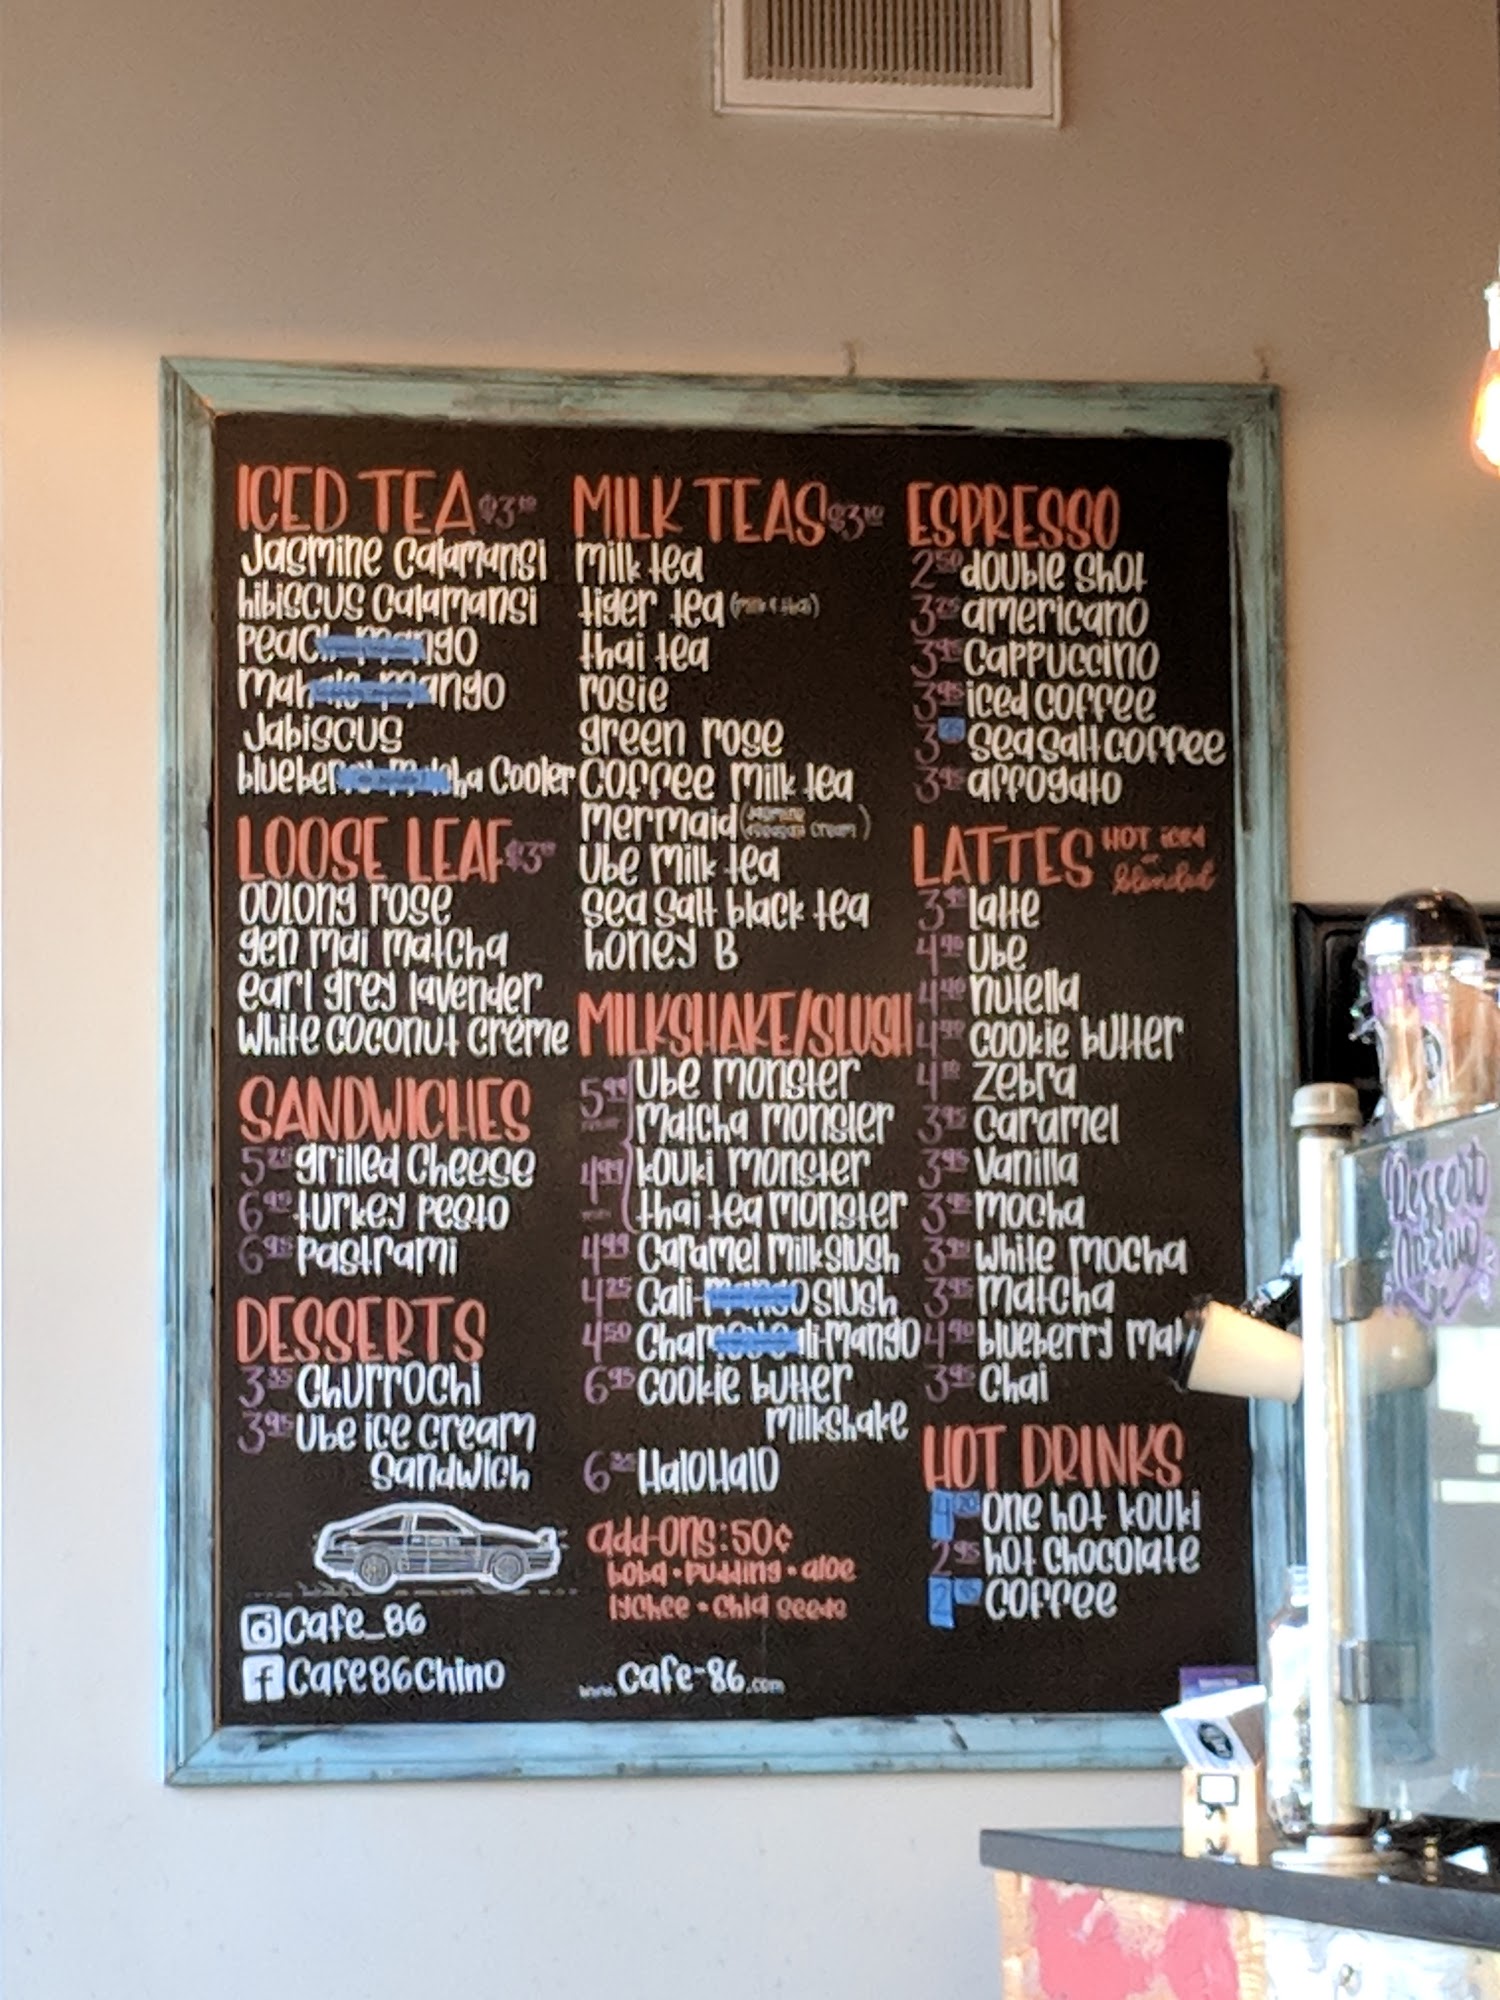 ICED TEA $3
Jasmine Calamansi
hibiscus Calamansi
Peach mango
mango
Jabiscus
blueberry matcha Cooler
LOOSE LEAF $3
oolong rose
gen mai matcha
earl grey lavender
white coconut créme
SANDWICHES
5.25 grilled cheese
6.95 turkey pesto
6.95 pastrami
DESSERTS
churrochi
3.95 Ube ice cream
sandwich
Cafe_86
f Cafe86Chino
MILK TEAS $3
milk tea
tiger tea (milk & thai)
thai tea
rosie
green rose
coffee milk tea
mermaid (Jasmine
cream)
Ube milk tea
sea salt black tea
honey B
MILKSHAKE/SLUSH
5.99 Ube monster
matcha monster
4.99 kouki monster
thai tea monster
4.99 Caramel milkslush
4.25 Cali-mango slush
4.50 Cali-mango
6.95 cookie butter
milkshake
6 HaloHalo
add-ons: 50¢
boba • pudding • aloe
lychee • chia seeds
www.cafe-86.com
ESPRESSO
2.50 double shot
3.25 americano
3.95 cappuccino
3.95 iced coffee
3 sea salt coffee
3.95 affogato
LATTES HOT iced
or
blended
latte
4.90 Ube
4.90 nutella
4.90 cookie butter
zebra
3.95 caramel
3.95 vanilla
3.95 mocha
3.95 white mocha
3.95 matcha
4.90 blueberry mat
3.95 chai
HOT DRINKS
4 One hot kouki
2.95 hot chocolate
2 coffee
Dessert
Menu